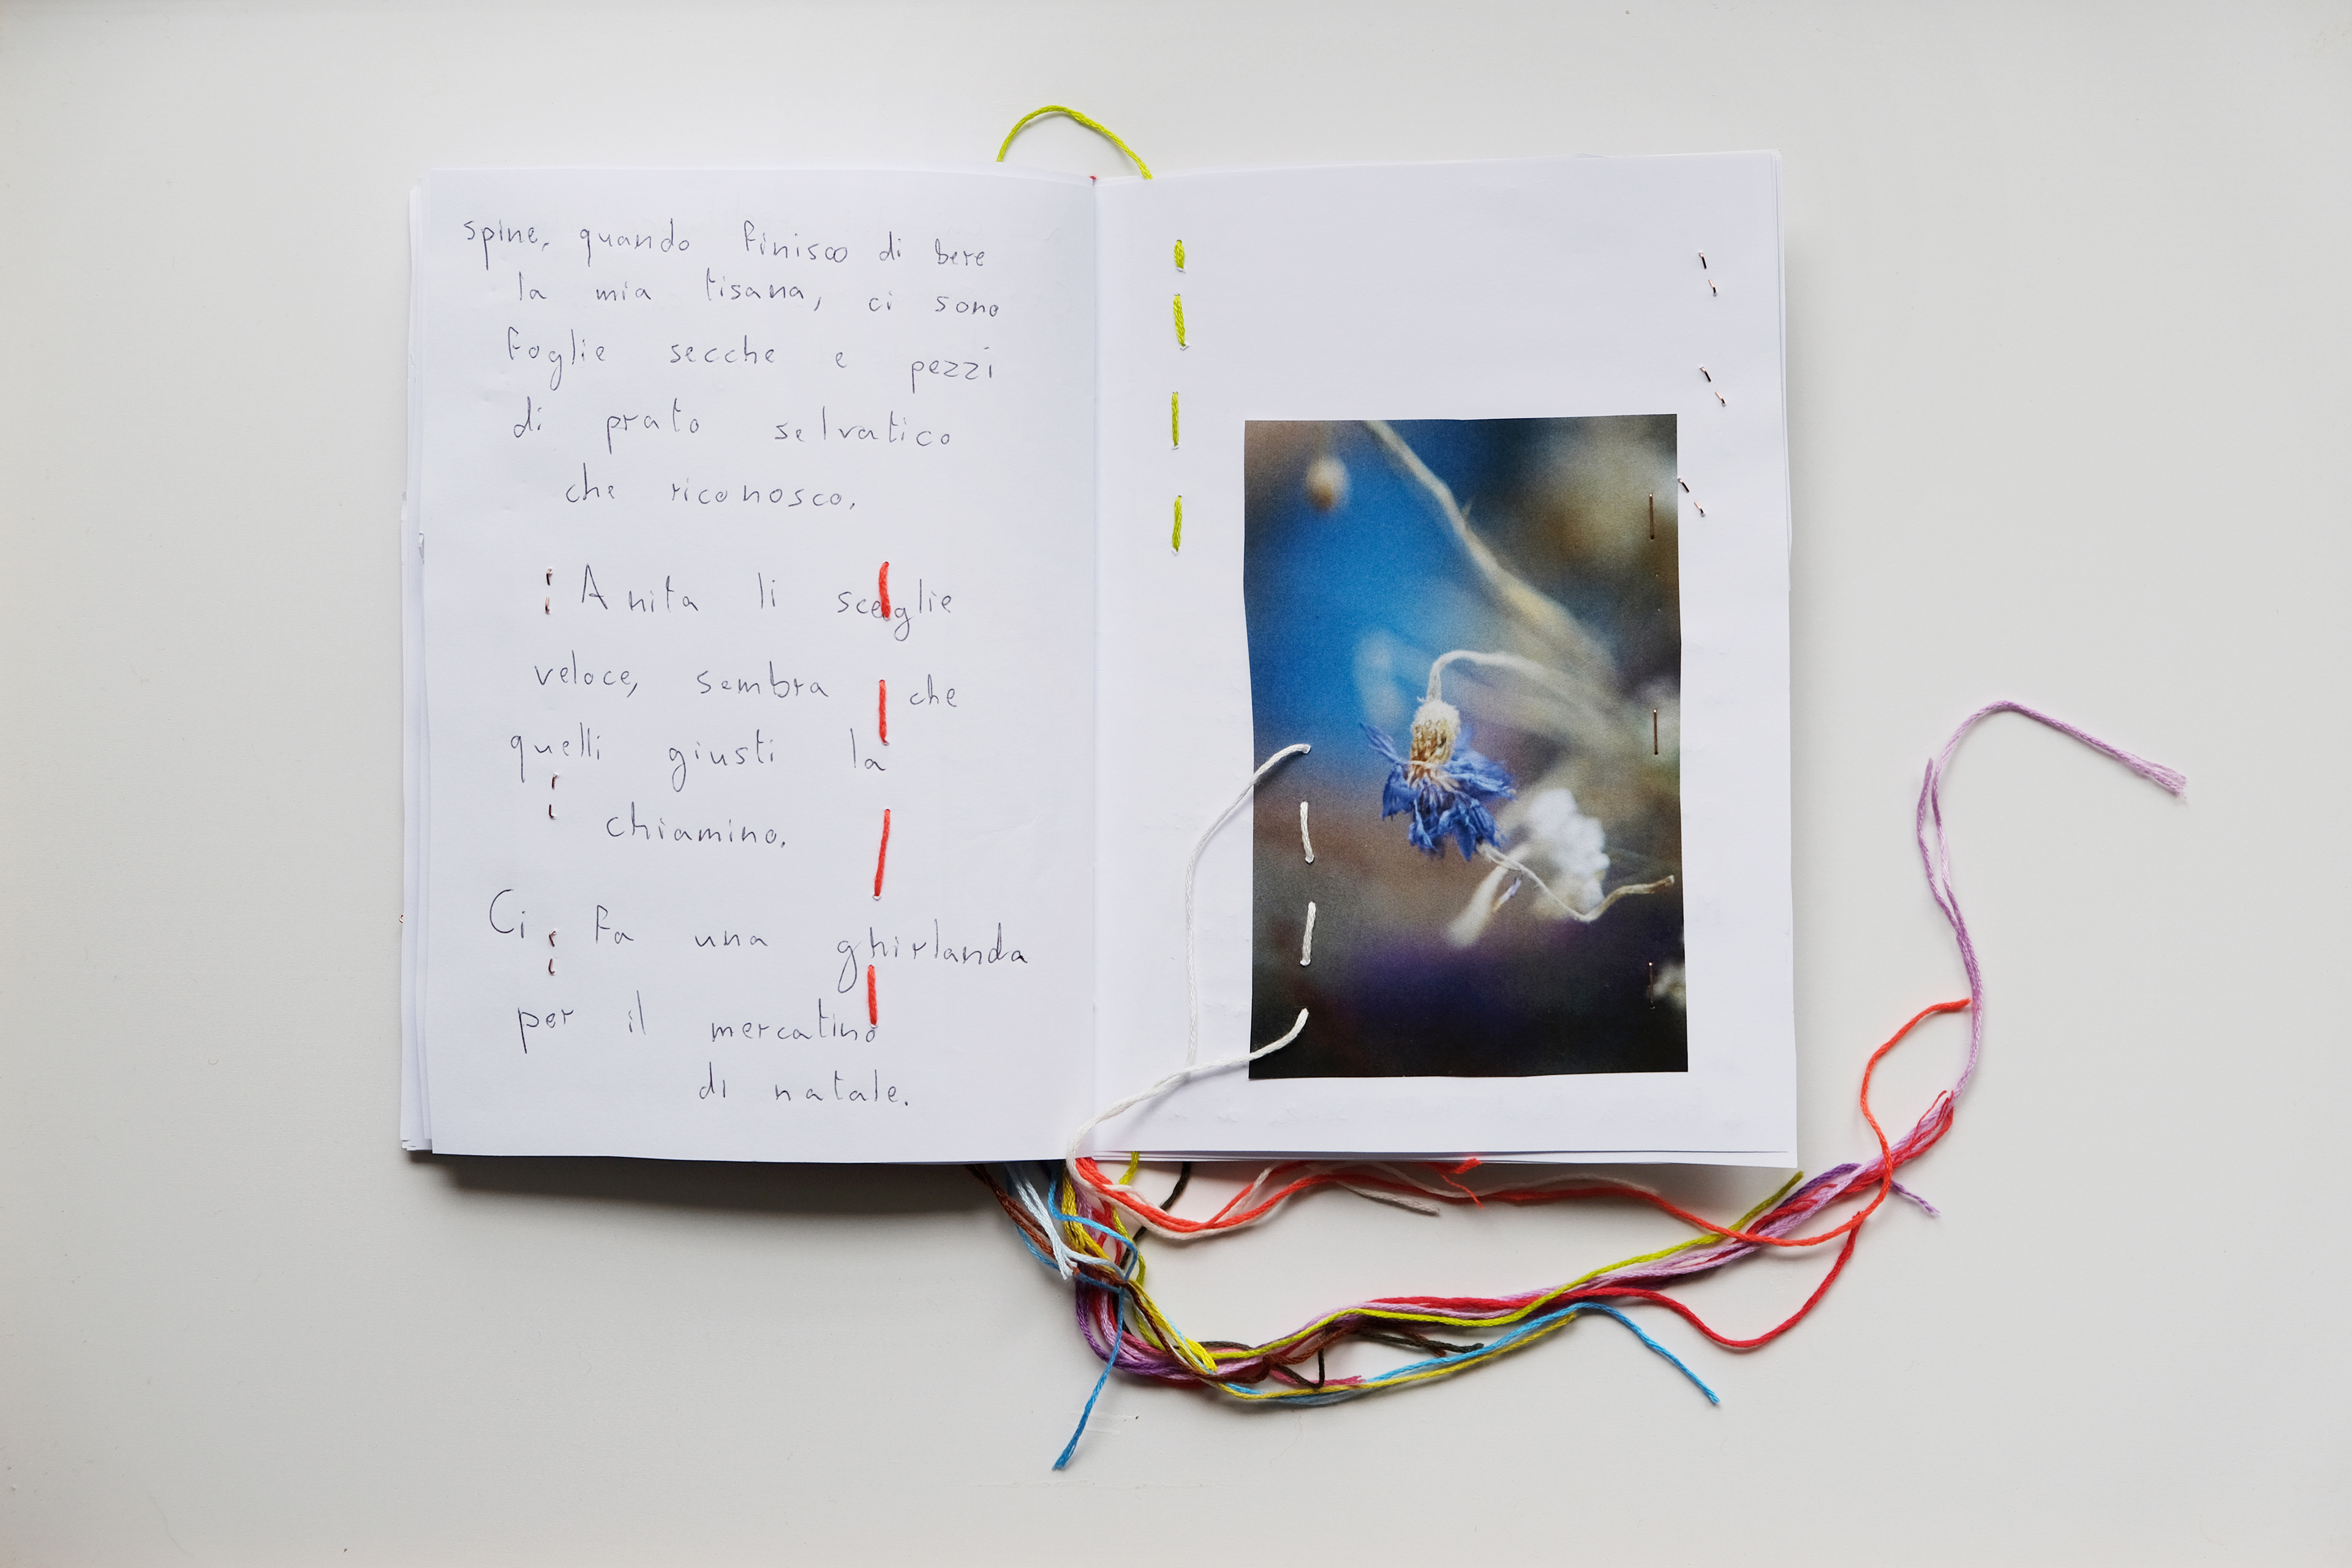 spine, quando finisco di bere
la mia tisana, ci sono
foglie secche e pezzi
di prato selvatico
che riconosco.
Anita li sceglie
veloce, sembra che
quelli giusti la
chiamino.
Ci fa una ghirlanda
per il mercatino
di natale.